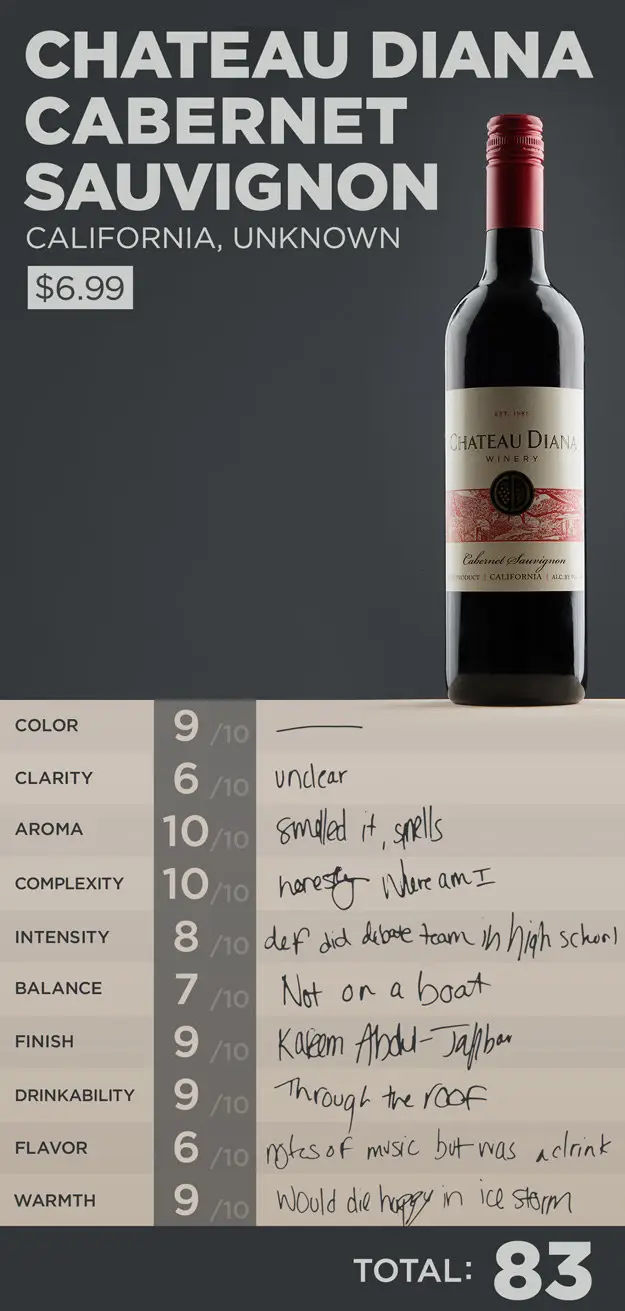 CHATEAU DIANA
CABERNET
SAUVIGNON
CALIFORNIA, UNKNOWN
$6.99
EST. 1981
CHATEAU DIANA
WINERY
Cabernet Sauvignon
PRODUCT | CALIFORNIA | ALC. BY
COLOR 9 /10
CLARITY 6 /10 unclear
AROMA 10 /10 smelled it, smells
COMPLEXITY 10 /10 honestly where am I
INTENSITY 8 /10 def did debate team in high school
BALANCE 7 /10 Not on a boat
FINISH 9 /10 Kareem Abdul-Jabbar
DRINKABILITY 9 /10 Through the roof
FLAVOR 6 /10 notes of music but was a drink
WARMTH 9 /10 would die happy in ice storm
TOTAL: 83